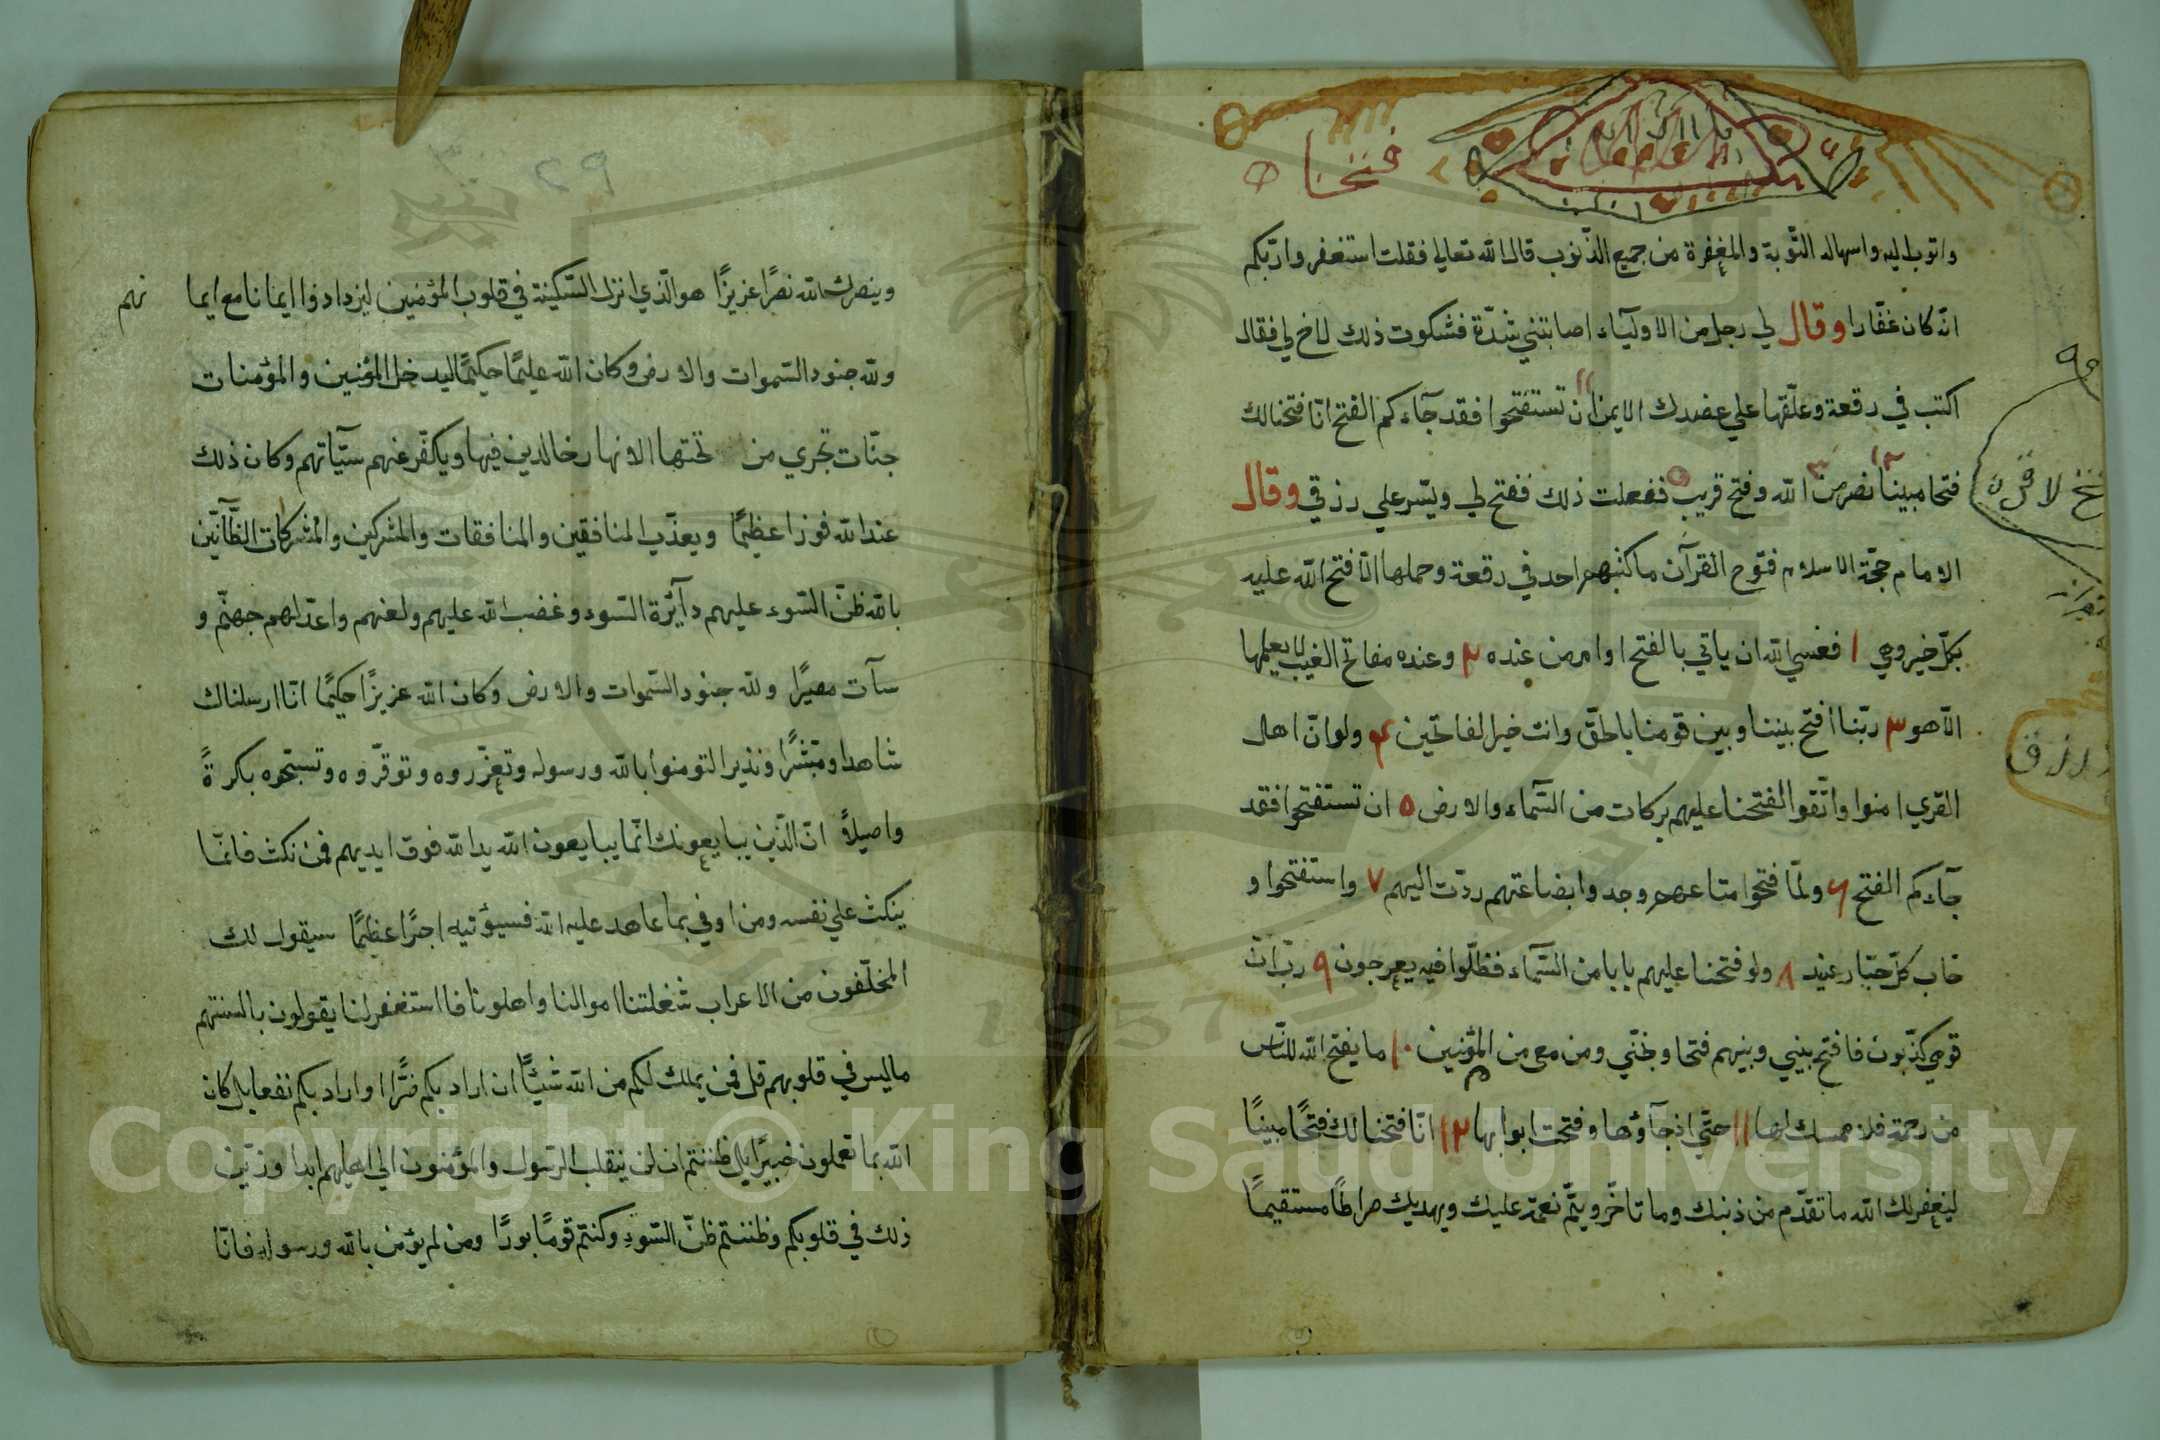 فتحنا
واتوب اليه واسهاله التّوبة والمغفرة من جميع الذّنوب قال الله تعالي فقلت استغفروا ربّكم
انّه كان غفّارا وقال لي رجل من الاوليآء اصابتني شدّة فشكوت ذلك لاخ لي فقال
اكتب في رقعة وعلّقها علي عضدك الايمن ان تستفتحوا فقد جآءكم الفتح انّا فتحنا لك
فتحا مبينا نصر من الله وفتح قريب ففعلت ذلك ففتح لي ويسّر علي رزقي وقال
الامام حجّة الاسلام فتوح القرآن ما كتبهم احد في رقعة وحملها الّا فتح الله عليه
بكلّ خير وهي ١ فعسي الله ان ياتي بالفتح او امر من عنده ٢ وعنده مفاتح الغيب لا يعلمها
الّا هو ٣ ربّنا افتح بيننا وبين قومنا بالحقّ وانت خير الفاتحين ٤ ولو انّ اهل
القري امنوا واتّقوا لفتحنا عليهم بركات من السّمآء والارض ٥ ان تستفتحوا فقد
جآءكم الفتح ٦ ولمّا فتحوا متاعهم وجدوا بضاعتهم ردّت اليهم ٧ واستفتحوا و
خاب كلّ جبّار عنيد ٨ ولو فتحنا عليهم بابا من السّمآء فظلّوا فيه يعرجون ٩ ربّ انّ
قومي كذّبون فافتح بيني وبينهم فتحا ونجّني ومن معي من المؤمنين ١٠ ما يفتح الله للنّاس
من رحمة فلا ممسك لها ١١ حتّي اذا جآؤها وفتحت ابوابها ١٢ انّا فتحنا لك فتحًا مبينًا
ليغفر لك الله ما تقدّم من ذنبك وما تاخّر ويتمّ نعمته عليك ويهديك صراطًا مستقيمًا
٢٩
وينصرك الله نصرًا عزيزًا هو الّذي انزل السّكينة في قلوب المؤمنين ليزدادوا ايمانا مع ايما نهم
ولله جنود السّموات والارض وكان الله عليمًا حكيمًا ليدخل المؤمنين والمؤمنات
جنّات تجري من تحتها الانهار خالدين فيها ويكفّر عنهم سيّآتهم وكان ذلك
عند الله فوزا عظيمًا ويعذّب المنافقين والمنافقات والمشركين والمشركات الظّآنّين
بالله ظنّ السّوء عليهم دآئرة السّوء وغضب الله عليهم ولعنهم واعدّ لهم جهنّم و
سآت مصيرًا ولله جنود السّموات والارض وكان الله عزيزًا حكيمًا انّا ارسلناك
شاهدا ومبشّرًا ونذيرا لتومنوا بالله ورسوله وتعزّروه وتوقّروه وتسبّحوه بكرةً
واصيلاً انّ الّذين يبايعونك انّما يبايعون الله يد الله فوق ايديهم فمن نكث فانّما
ينكث علي نفسه ومن اوفي بما عاهد عليه الله فسيؤتيه اجرًا عظيمًا سيقول لك
المخلّفون من الاعراب شغلتنا اموالنا واهلونا فاستغفر لنا يقولون بالسنتهم
ما ليس في قلوبهم قل فمن يملك لكم من الله شيئًا ان اراد بكم ضرًّا او اراد بكم نفعا بل كان
الله بما تعملون خبيرًا بل ظننتم ان لن ينقلب الرّسول والمؤمنون الي اهليهم ابدا وزيّن
ذلك في قلوبكم وظننتم ظنّ السّوءِ وكنتم قومًا بورًا ومن لم يؤمن بالله ورسوله فانّا
1957
Copyright © King Saud University